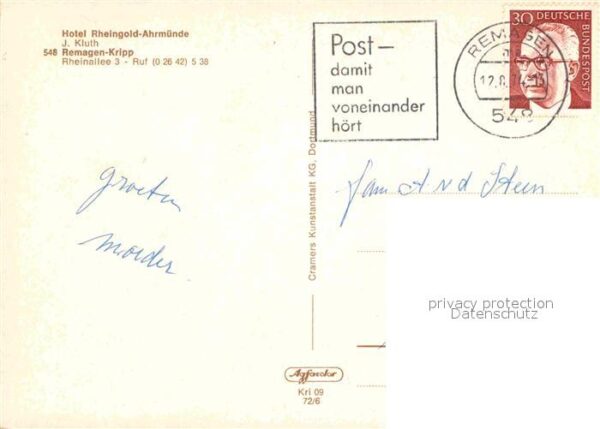 Hotel Rheingold-Ahrmünde
J. Kluth
548 Remagen-Kripp
Rheinallee 3 - Ruf (0 26 42) 5 38
Post –
damit
man
voneinander
hört
REMAGEN
12.8.74-13
548
30 DEUTSCHE
BUNDESPOST
Groeten
moeder
Fam A v d Steen
Cramers Kunstanstalt KG, Dortmund
privacy protection
Datenschutz
Agfacolor
Kri 09
72/6